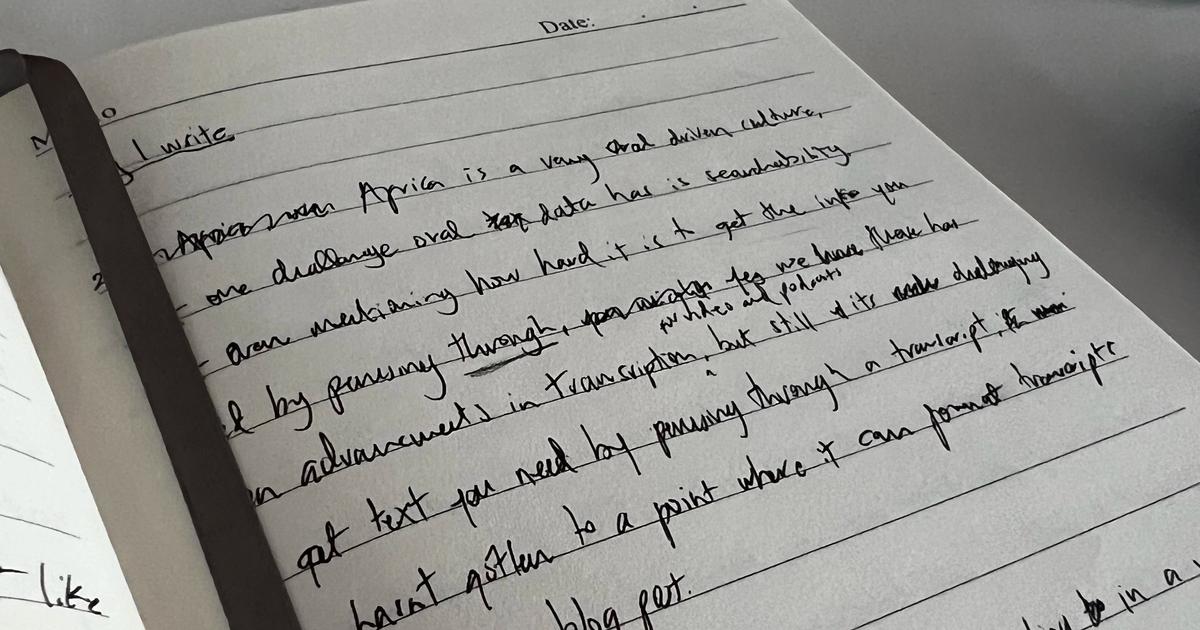 Date:
I write
Africa is a very oral driven culture,
- one challenge oral data has is searchability
- even mentioning how hard it is to get the info you
by perusing through, Yes we have there has
for video and podcasts
advancements in transcription, but still its challenging
get text you need by perusing through a transcript,
hasnt gotten to a point where it can format transcripts
blog post.
in a
- like